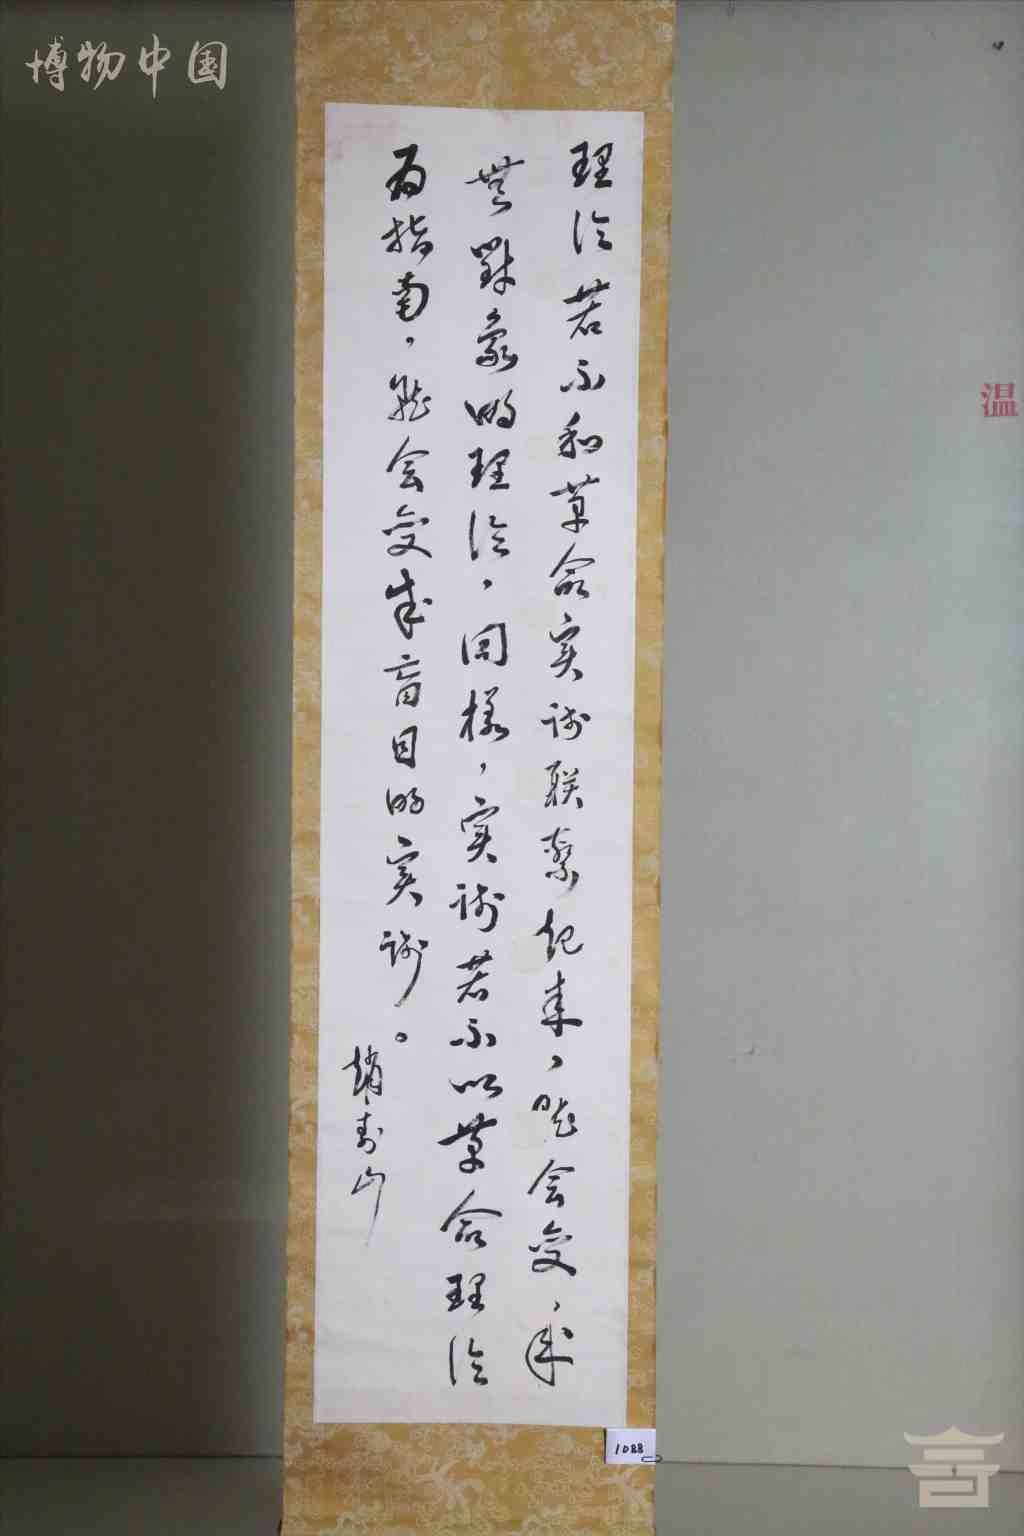 博物中国
理论若不和革命实践联繫起来，就会变，成
無對象的理论，同樣，实践若不以革命理论
为指南，就会变成盲目的实践。
趙寿山
温
1088